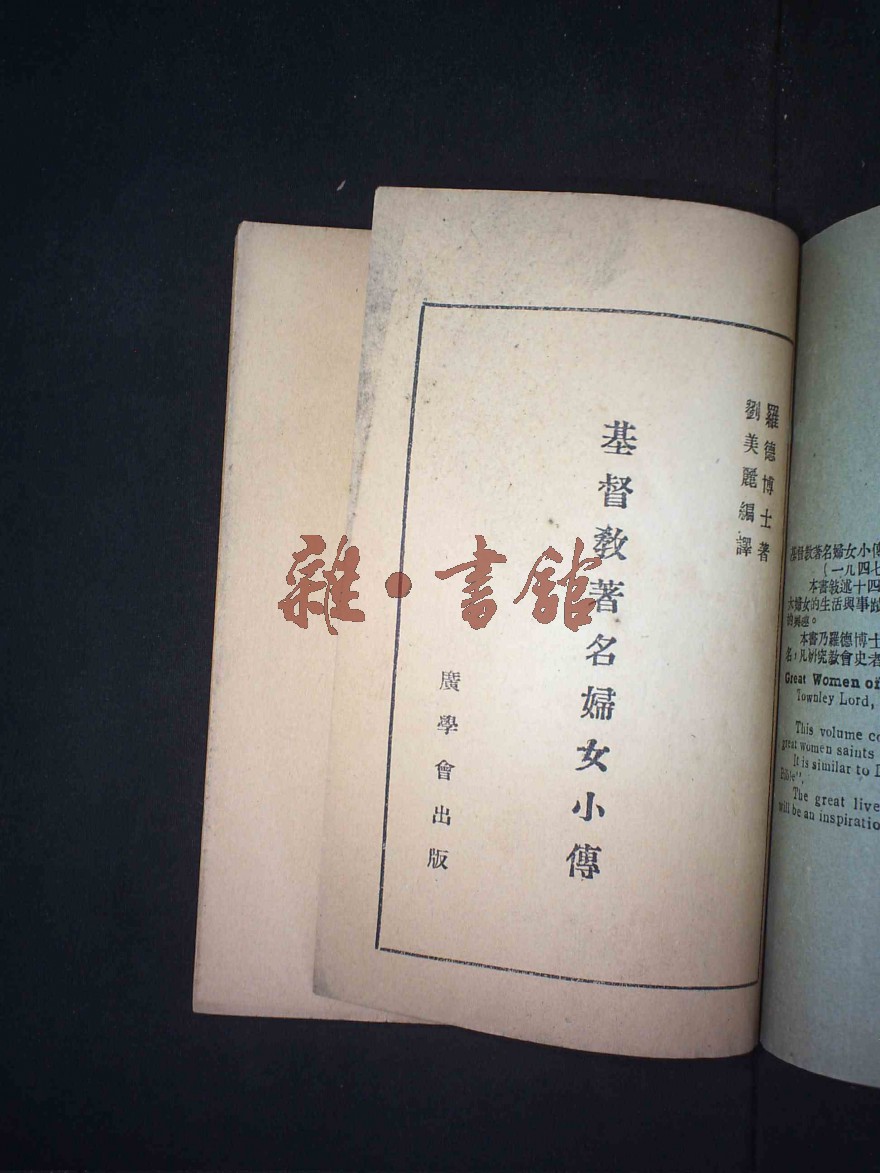 羅德博士著
劉美麗編譯
基督教著名婦女小傳
廣學會出版
雜·書館
基督教著名婦女小傳
(一九四七
本書敍述十四
大婦女的生活與事蹟
的興趣。
本書乃羅德博士
名,凡研究教會史者
Great Women of
Townley Lord,
This volume co
great women saints
It is similar to D
Bible".
The great live
will be an inspiratio